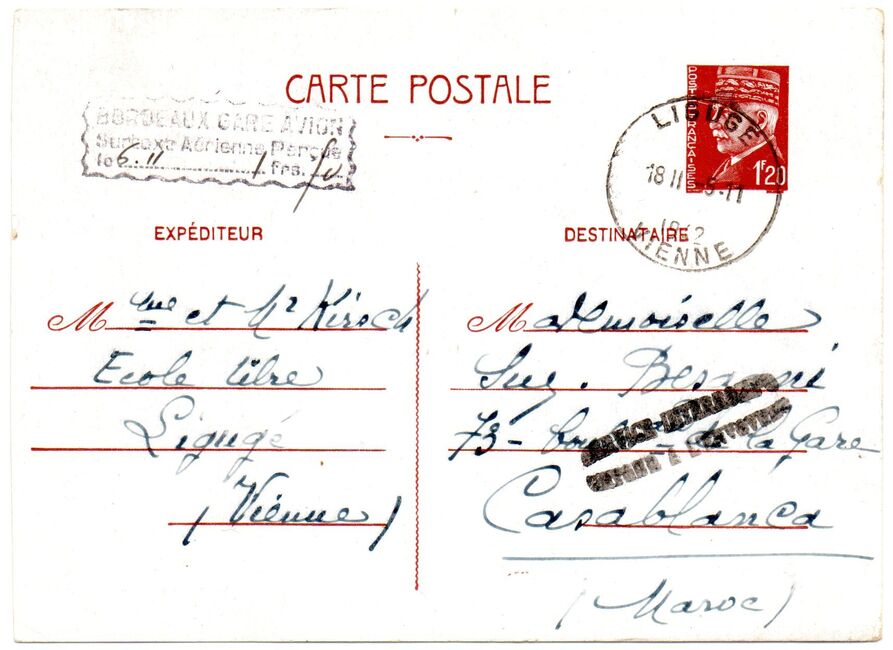 CARTE POSTALE
POSTES FRANÇAISES
1F20
BORDEAUX GARE AVION
Surtaxe Aérienne Perçue
le 6.11 1 frs. 50
LIGUGÉ
18 H 5-11
1942
VIENNE
EXPÉDITEUR
Mme et Mr Kirsch
Ecole libre
Ligugé
(Vienne)
DESTINATAIRE
Mademoiselle
Suz. Besagni
73 - boul de la Gare
Casablanca
(Maroc)
RETOUR A L'ENVOYEUR